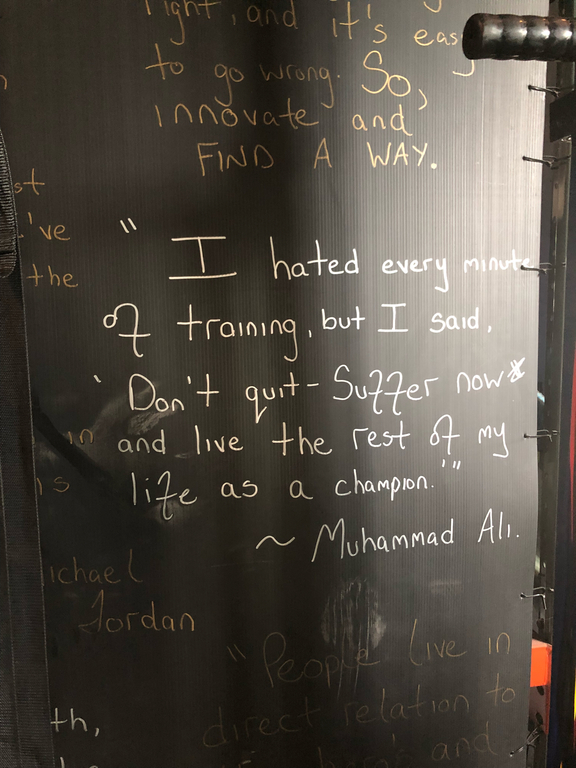 right, and it's eas
to go wrong. So,
innovate and
FIND A WAY.
st
've
the
" I hated every minute
of training, but I said,
' Don't quit - Suffer now
in and live the rest of my
is life as a champion.'"
~ Muhammad Ali.
ichael
Jordan
"People live in
th, direct relation to
and